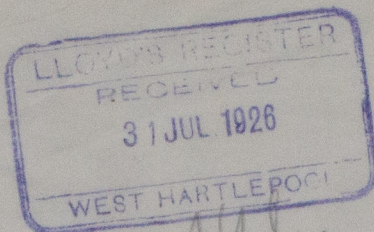 LLOYD'S REGISTER
RECEIVED
31 JUL 1926
WEST HARTLEPOOL